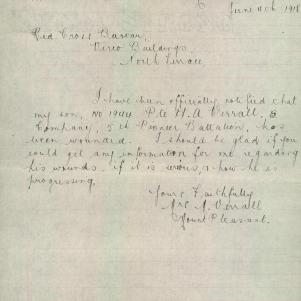 June 11th 1918
Red Cross Bureau,
Verco Buildings,
North Terrace
I have been officially notified that
my son, No 1944 Pte H. A. Verrall, B
Company, 5th Pioneer Battalion, has
been wounded. I should be glad if you
could get any information for me regarding
his wounds, if it is serious, & how he is
progressing,
Yours Faithfully
Mrs A. Verrall
Mount Pleasant.